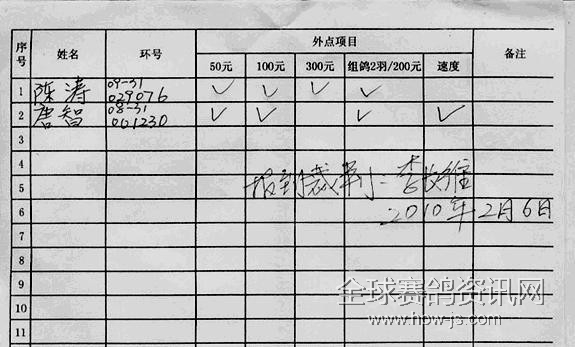 序号 姓名 环号 外点项目 备注
50元 100元 300元 组鸽2羽/200元 速度
1 陈涛 09-31 029076 ✓ ✓ ✓ ✓
2 唐智 08-31 001230 ✓ ✓ ✓ ✓
3
4
5 报到裁判:李
6 2010年2月6日
7
8
9
10
11
全球赛鸽资讯网
www.how-js.com